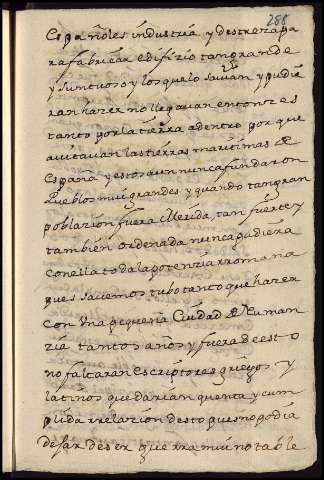 288
Españoles industria y destreza pa
ra fabricar edifizio tan grande
y suntuoso y los que lo savian y pudie
ran hazer no llegavan entonzes
tanto por la tierra adentro por que
avitavan las tierras maritimas de
España y estos aun nunca fundaron
Pueblos mui grandes y quando tan gran
poblazion fuera Merida, tan fuerte y
tambien ordenada nunca pudiera
con ella toda la potenzia rromana
pues savemos tubo tanto que hazer
con una pequeña Ciudad de Numan
zia tantos años y fuera de esto
no faltaran escriptores griegos y
latinos que darian quenta y cum
plida rrelazion desto pues no podia
dejar de ser guerra mui notable